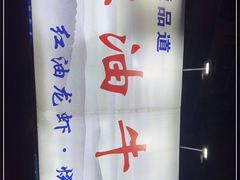 品道
油牛
红油龙虾·烧